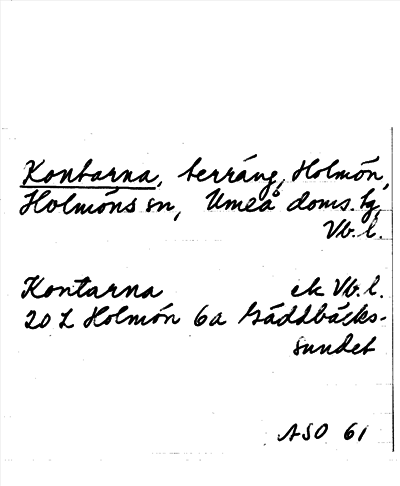 Kontarna, terräng, Holmön,
Holmöns sn, Umeå doms.tg,
Vb.l.
Kontarna ek Vb.l.
20 L Holmön 6a Gäddbäcks-
sundet
ASO 61